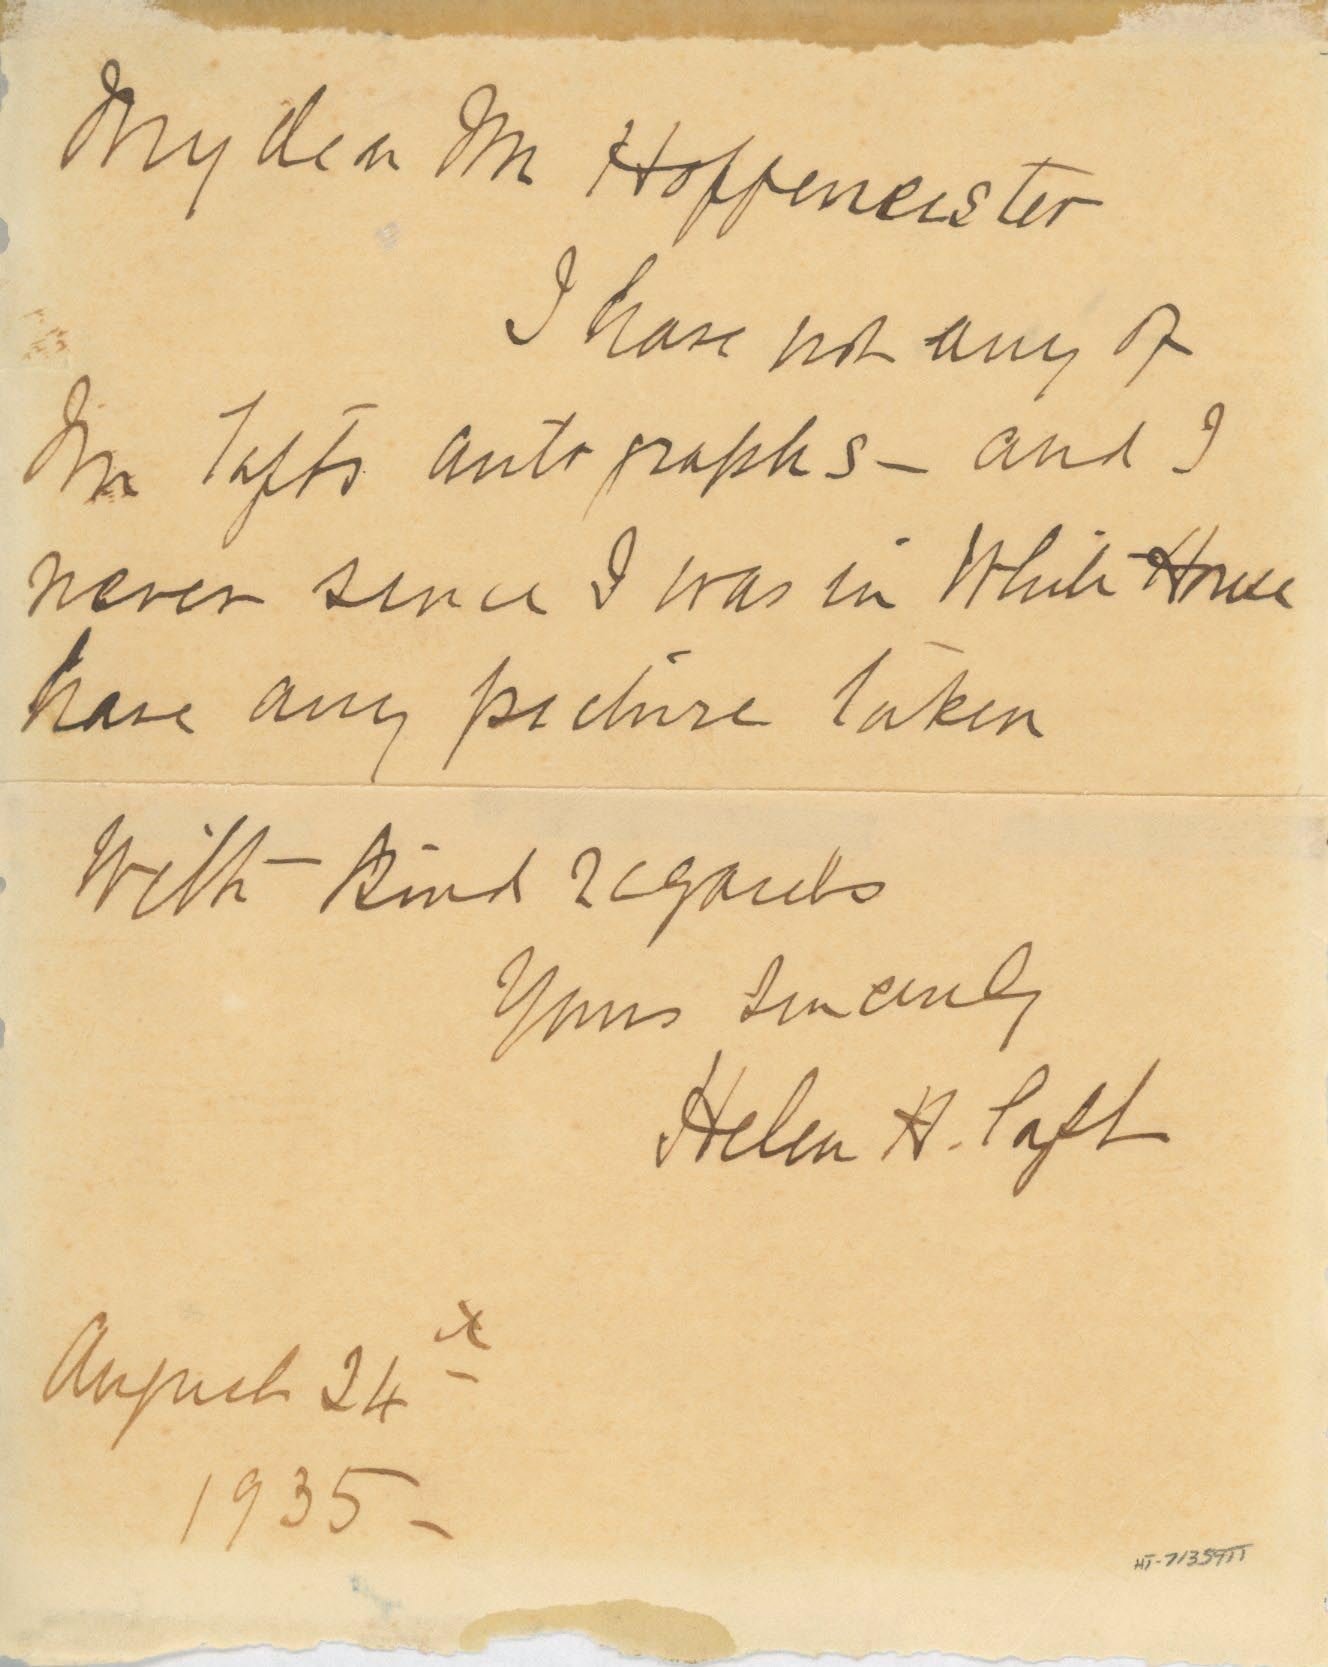 My dear Mr Hoffeneister
I have not any of
Mr Tafts autographs – and I
never since I was in White House
have any picture taken
With kind regards
Yours sincerely
Helen H. Taft
August 24th
1935 –